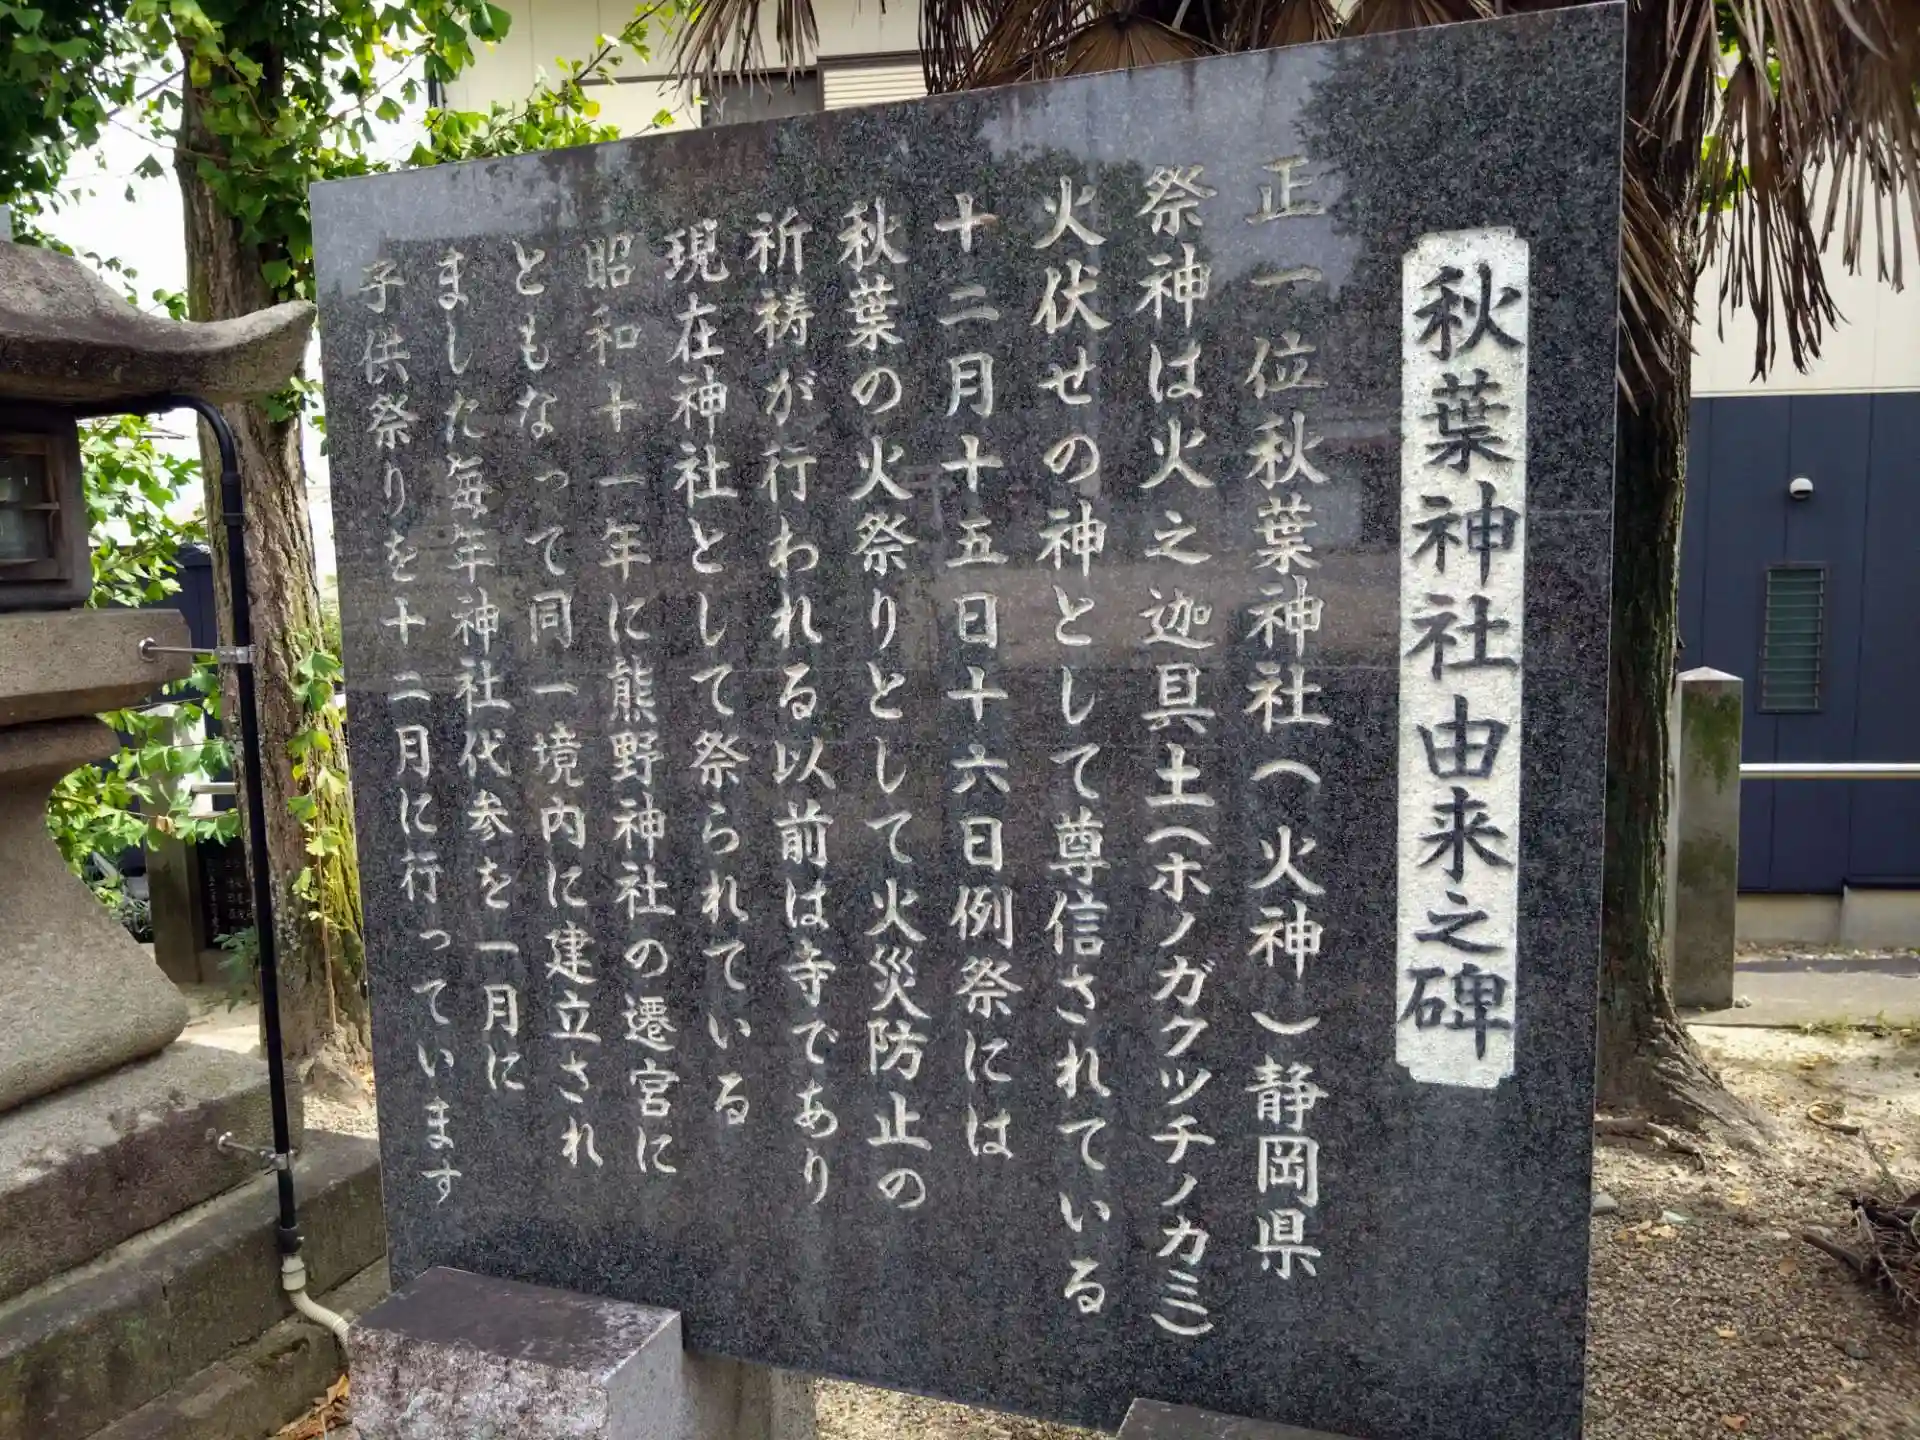 秋葉神社由来之碑
正一位秋葉神社(火神)静岡県
祭神は火之迦具土(ホノガクツチノカミ)
火伏せの神として尊信されている
十二月十五日十六日例祭には
秋葉の火祭りとして火災防止の
祈祷が行われる以前は寺であり
現在神社として祭られている
昭和十一年に熊野神社の遷宮に
ともなって同一境内に建立され
ました毎年神社代参を一月に
子供祭りを十二月に行っています